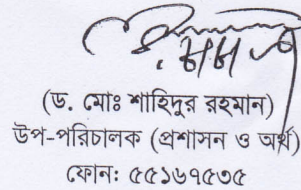 (ড. মোঃ শাহিদুর রহমান)
উপ-পরিচালক (প্রশাসন ও অর্থ)
ফোন: ৫৫১৬৭৫৩৫